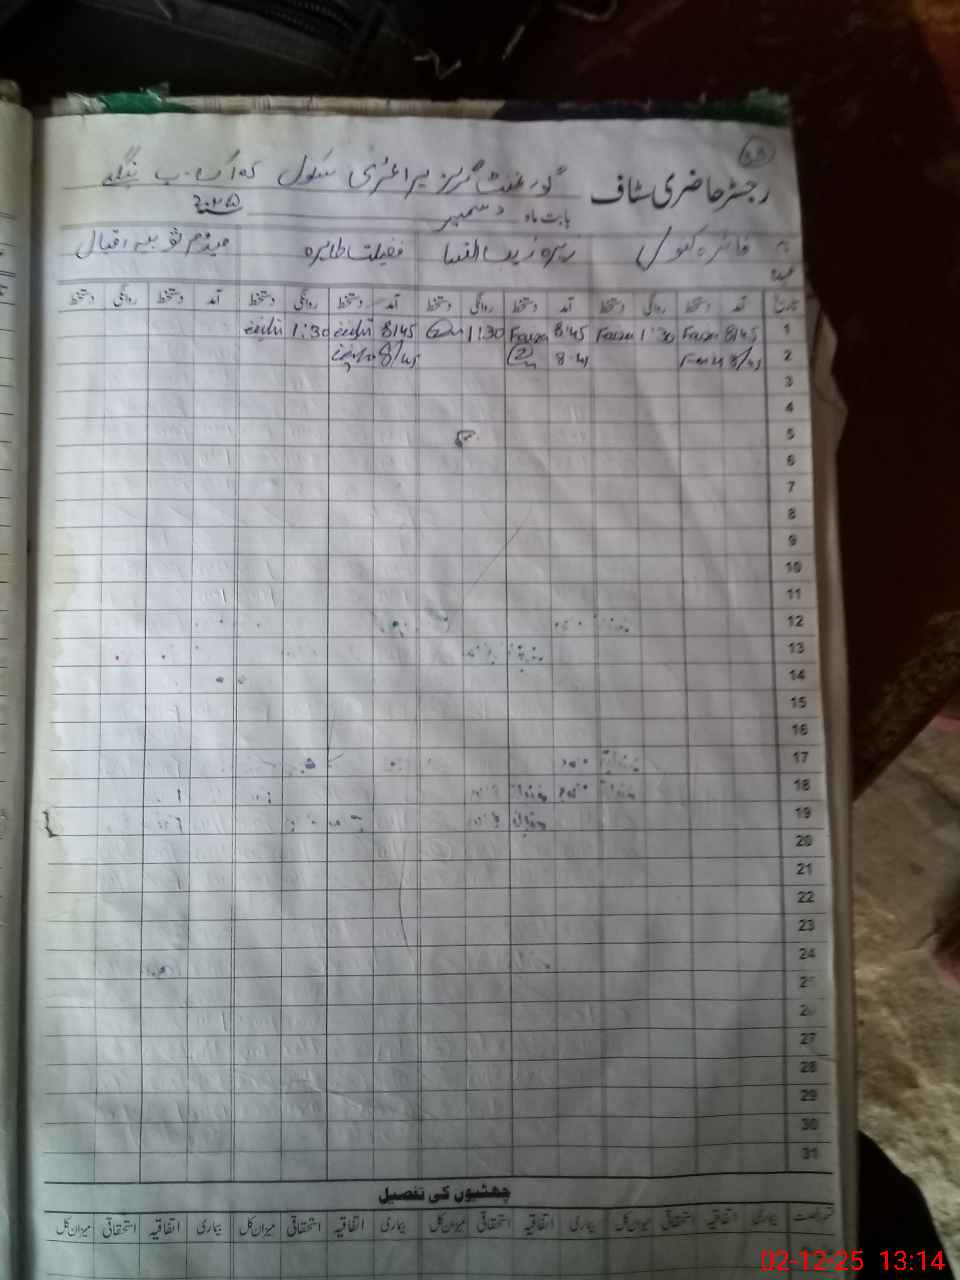 رجسٹر حاضری سٹاف گورنمنٹ گرلز پرائمری سکول
بابت ماہ دسمبر ۲۰۲۵
نام فائزہ کنول زہرہ زیب النسا فضیلت طاہرہ میڈم ثوبیہ اقبال
عہدہ
تاریخ آمد دستخط روانگی دستخط آمد دستخط روانگی دستخط آمد دستخط روانگی دستخط آمد دستخط روانگی دستخط
1 8/45 Faiza 1:30 Faiza 8:45 1:30 8/45 1:30
2 8/45 8:45 8/45
3
4
5
6
7
8
9
10
11
12
13
14
15
16
17
18
19
20
21
22
23
24
25
26
27
28
29
30
31
چھٹیوں کی تفصیل
بیماری اتفاقیہ استحقاقی میزان کل بیماری اتفاقیہ استحقاقی میزان کل بیماری اتفاقیہ استحقاقی میزان کل بیماری اتفاقیہ استحقاقی میزان کل
02-12-25 13:14